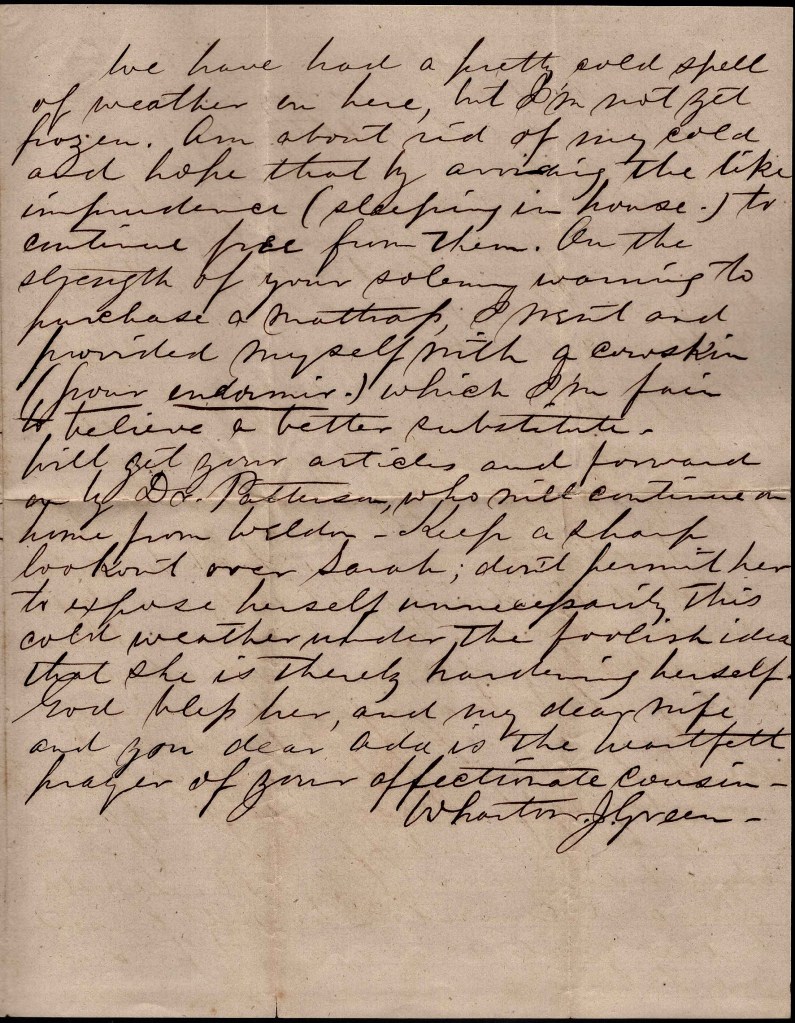 We have had a pretty cold spell
of weather on here, but I'm not yet
frozen. Am about rid of my cold
and hope that by avoiding the like
imprudence (sleeping in house.) to
continue free from them. On the
strength of your solemn warning to
purchase a mattrass, I went and
provided myself with a cowskin
(pour endormir.) which I'm fain
to believe a better substitute.
Will get your articles and forward
on by Dr. Patterson, who will continue on
home from Weldon - Keep a sharp
lookout over Sarah; don't permit her
to expose herself unnecessarily this
cold weather under the foolish idea
that she is thereby hardening herself.
God bless her, and my dear wife
and you dear Ada is the heartfelt
prayer of your affectionate cousin -
Wharton. J. Green -